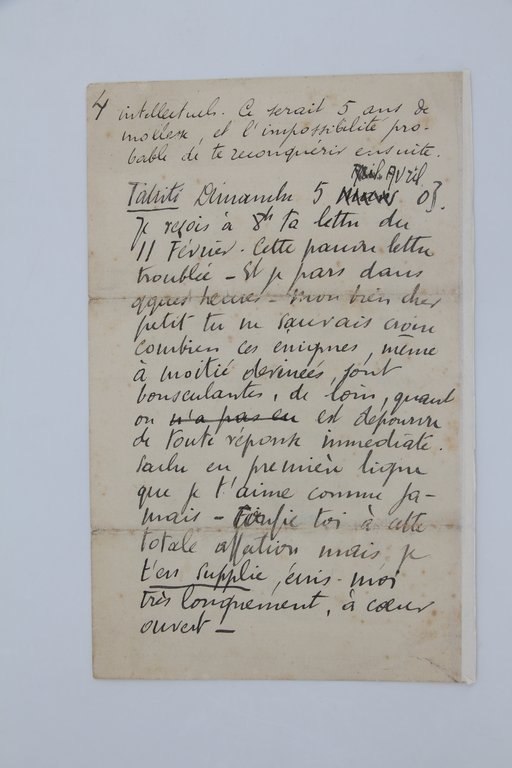 4 intellectuels. Ce serait 5 ans de
mollesse, et l'impossibilité pro-
bable de te reconquérir ensuite.
Avril
Tahiti Dimanche 5 03.
Je reçois à 8h ta lettre du
11 Février. Cette pauvre lettre
troublée - Et je pars dans
qques heures - Mon bien cher
petit tu ne saurais croire
combien ces énigmes, même
à moitié devinées, sont
bousculantes, de loin, quand
on n'a pas eu est dépourvu
de toute réponse immédiate.
Sache en première ligne
que je t'aime comme ja-
mais - Confie toi à cette
totale affection mais je
t'en supplie, écris-moi
très longuement, à cœur
ouvert -